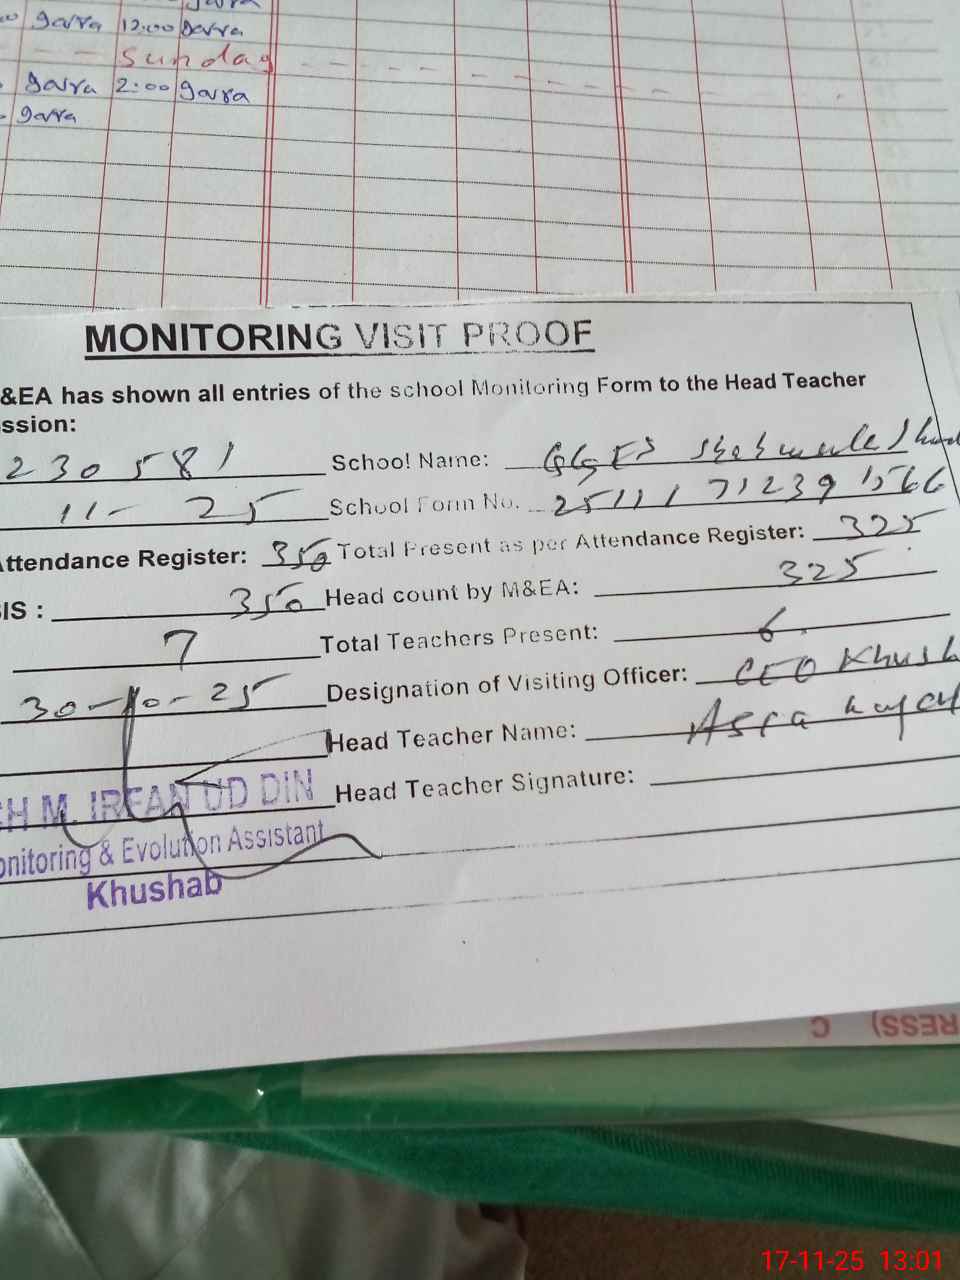 garra 12:00 garra
Sunday
garra 2:00 garra
garra
MONITORING VISIT PROOF
&EA has shown all entries of the school Monitoring Form to the Head Teacher
ssion:
230581 School Name: GGES
11- 25 School Form No. 25111 71239 1566
ttendance Register: 350 Total Present as per Attendance Register: 325
SIS : 350 Head count by M&EA: 325
7 Total Teachers Present: 6
30-10-25 Designation of Visiting Officer: CEO Khush
Head Teacher Name: Asra
CH M. IRFAN UD DIN Head Teacher Signature:
onitoring & Evolution Assistant
Khushab
RESS) C
17-11-25 13:01